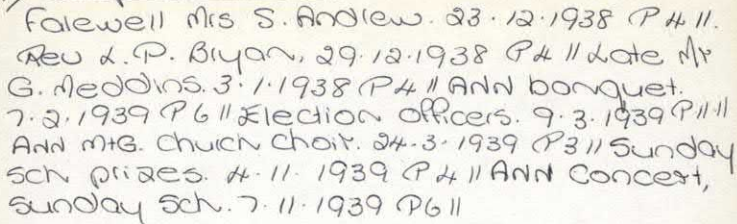 Farewell Mrs S. Andrew. 23.12.1938 P4 //.
Rev L.P. Bryan, 29.12.1938 P4 // Late Mr
G. Meddins. 3.1.1938 P4 // ANN banquet.
7.2.1939 P6 // Election officers. 9.3.1939 P11 //
ANN MtG. Church Choir. 24.3.1939 P3 // Sunday
Sch prizes. 4.11.1939 P4 // ANN Concert,
Sunday Sch. 7.11.1939 P6 //